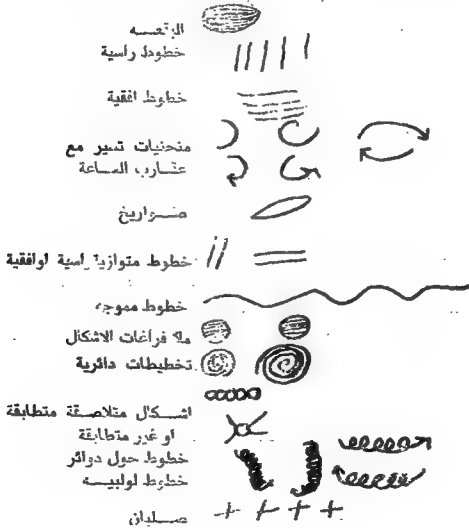 خطوط راسية
خطوط افقية
منحنيات تسير مع
عقارب الساعة
صواريخ
خطوط متوازية راسية اوافقية
خطوط مموجه
ملأ فراغات الاشكال
تخطيطات دائرية
اشكال متلاصقة متطابقة
او غير متطابقة
خطوط حول دوائر
خطوط لولبيه
صلبان